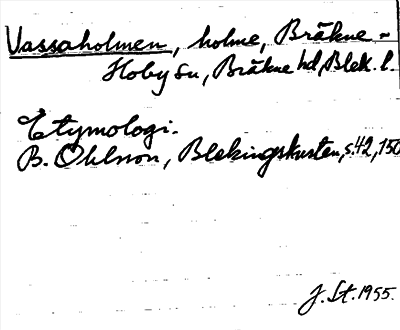 Vassaholmen, holme, Bräkne-
Hoby sn, Bräkne hd, Blek. l.
Etymologi.
B. Ohlsson, Blekingskusten, s. 42, 150
J. St. 1955.